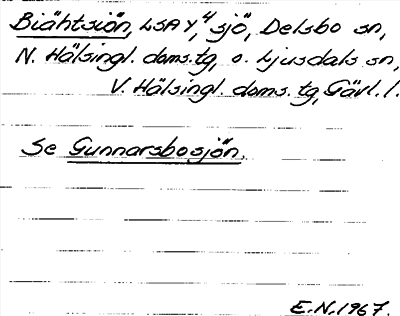 Biähtsiön, LSA Y, 4 sjö, Delsbo sn,
N. Hälsingl. doms.tg, o. Ljusdals sn,
V. Hälsingl. doms. tg, Gävl. l.
Se Gunnarsbosjön.
E.N. 1967.